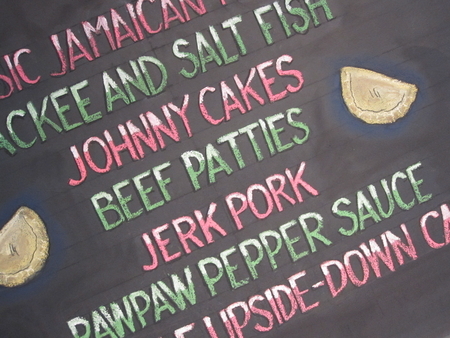 SIC JAMAICAN
ACKEE AND SALT FISH
JOHNNY CAKES
BEEF PATTIES
JERK PORK
PAWPAW PEPPER SAUCE
UPSIDE-DOWN CA